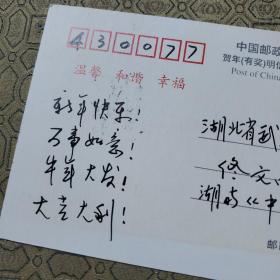 430077
中国邮政
贺年(有奖)明信
Post of China
温馨 和谐 幸福
新年快乐!
万事如意!
牛年大发!
大吉大利!
湖北省武
佟文
湖南《中
邮